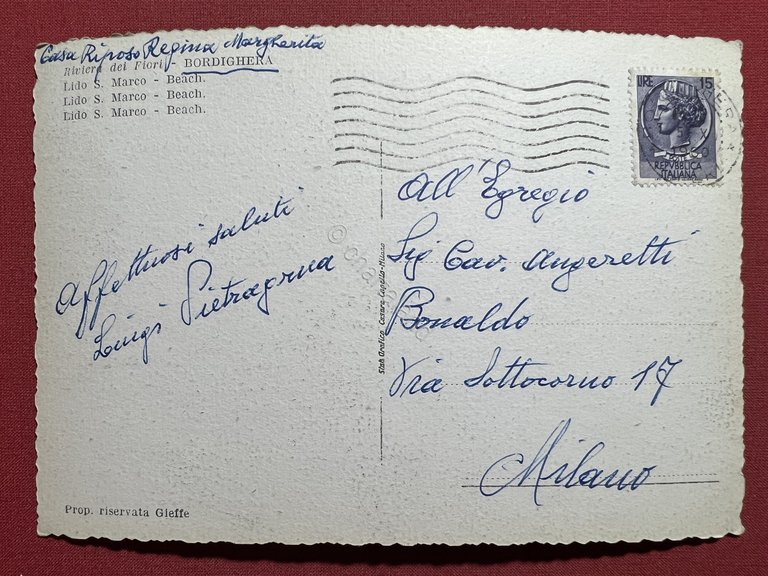 Casa Riposo Regina Margherita
Riviera dei Fiori - BORDIGHERA
Lido S. Marco - Beach.
Lido S. Marco - Beach.
Lido S. Marco - Beach.
LIRE 15
REPVBBLICA
ITALIANA
1960
Affettuosi saluti
Luigi Pietragrua
All'Egregio
Sig Cav. Angeretti
Bonaldo
Via Sottocorno 17
Milano
Stab. Grafico Cesare Capello - Milano
Prop. riservata Gieffe